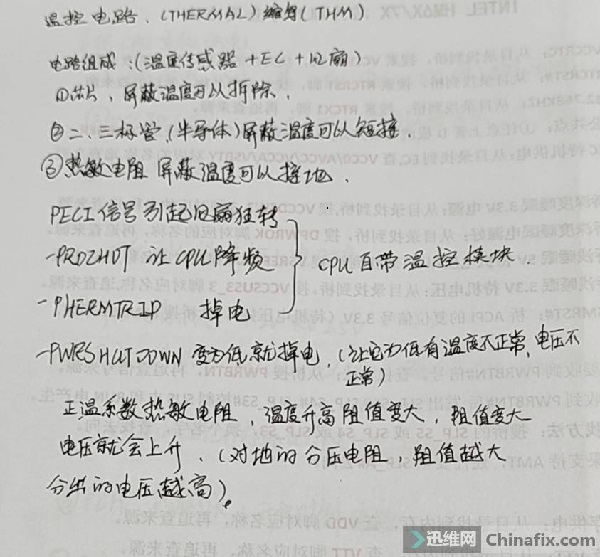 温控电路.(THERMAL)缩写(THM)
电路组成:(温度传感器+EC+风扇)
①芯片,屏蔽温度可以拆除.
②二、三极管(半导体)屏蔽温度可以短接.
③热敏电阻 屏蔽温度可以接地.
PECI信号引起风扇狂转
-PROZHOT 让CPU降频
CPU自带温控模块
-PHERMTRIP 掉电
-PWRSHUTDOWN变为低就掉电.(让它为低有温度不正常,电压不正常)
正温系数热敏电阻 温度升高阻值变大,阻值变大
电压就会上升.(对地的分压电阻,阻值越大
分出的电压越高).
迅维网>Chinafix.com